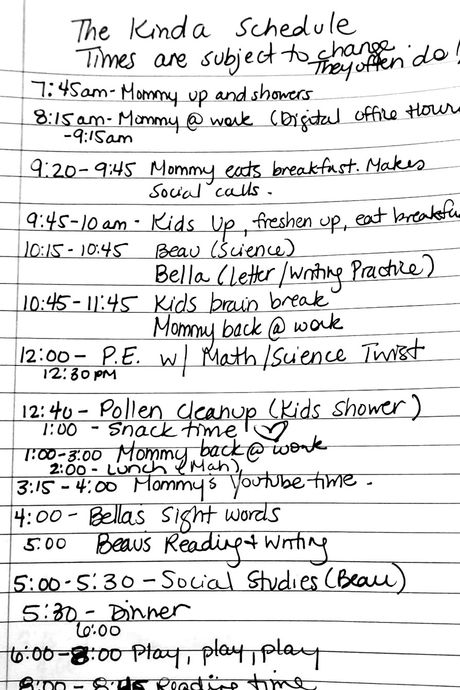 The Kinda Schedule
Times are subject to change
They often do!
7:45am- Mommy up and showers
8:15am- Mommy @ work (Digital office Hour
-9:15am
9:20-9:45 Mommy eats breakfast. Makes
Social calls.
9:45-10am- Kids Up, freshen up, eat breakfa
10:15-10:45 Beau (Science)
Bella (Letter/Writing Practice)
10:45-11:45 Kids brain break
Mommy back @ work
12:00- P.E. w/ Math/Science Twist
12:30PM
12:40- Pollen Cleanup (Kids Shower)
1:00 - Snack time ♡
1:00-3:00 Mommy back @ work
2:00- Lunch (Mah)
3:15-4:00 Mommy's Youtube time.
4:00- Bellas Sight words
5:00 Beaus Reading & Writing
5:00-5:30- Social Studies (Beau)
5:30- Dinner
6:00
6:00-8:00 Play, play, play
8:00-8:45 Reading time